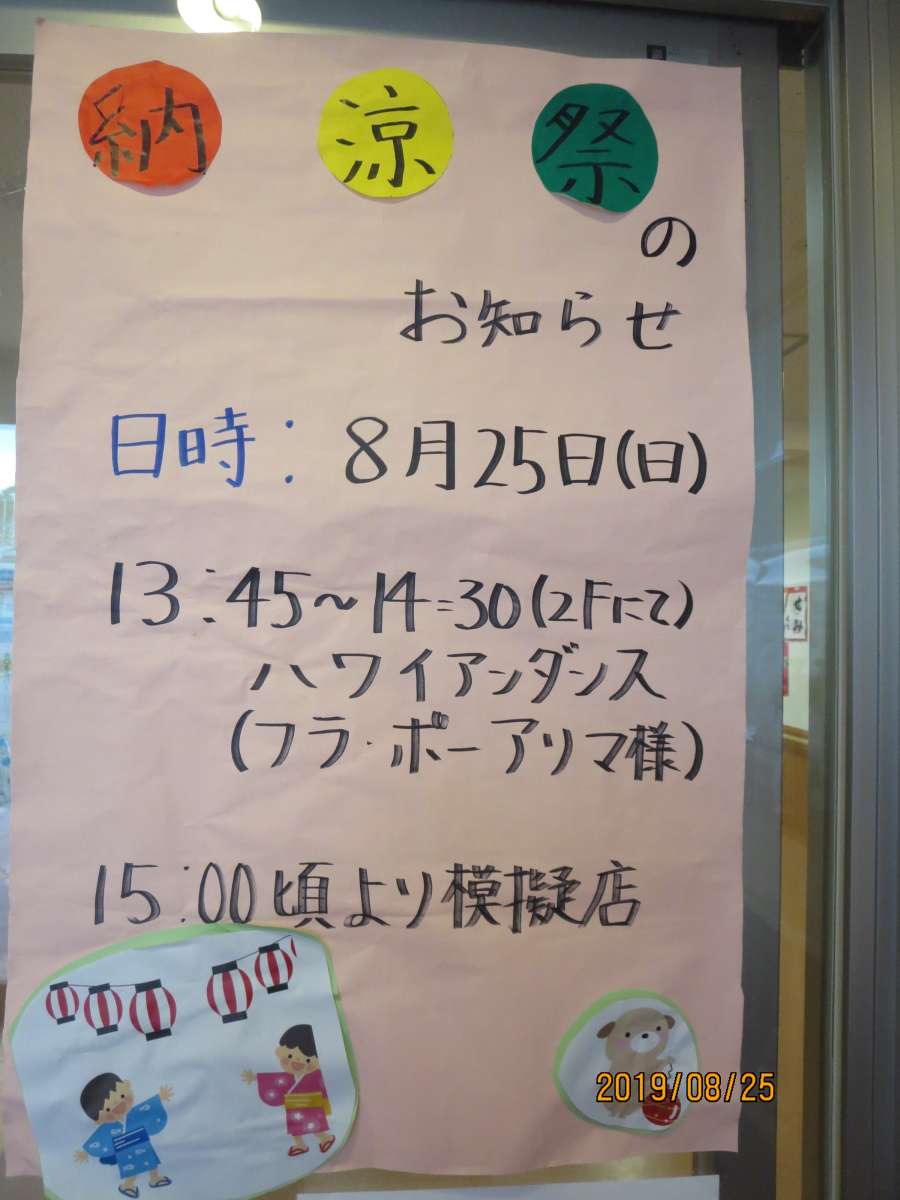 納涼祭の
お知らせ
日時：8月25日(日)
13:45～14:30(2Fにて)
ハワイアンダンス
(フラ・ボーアリマ様)
15:00頃より模擬店
2019/08/25